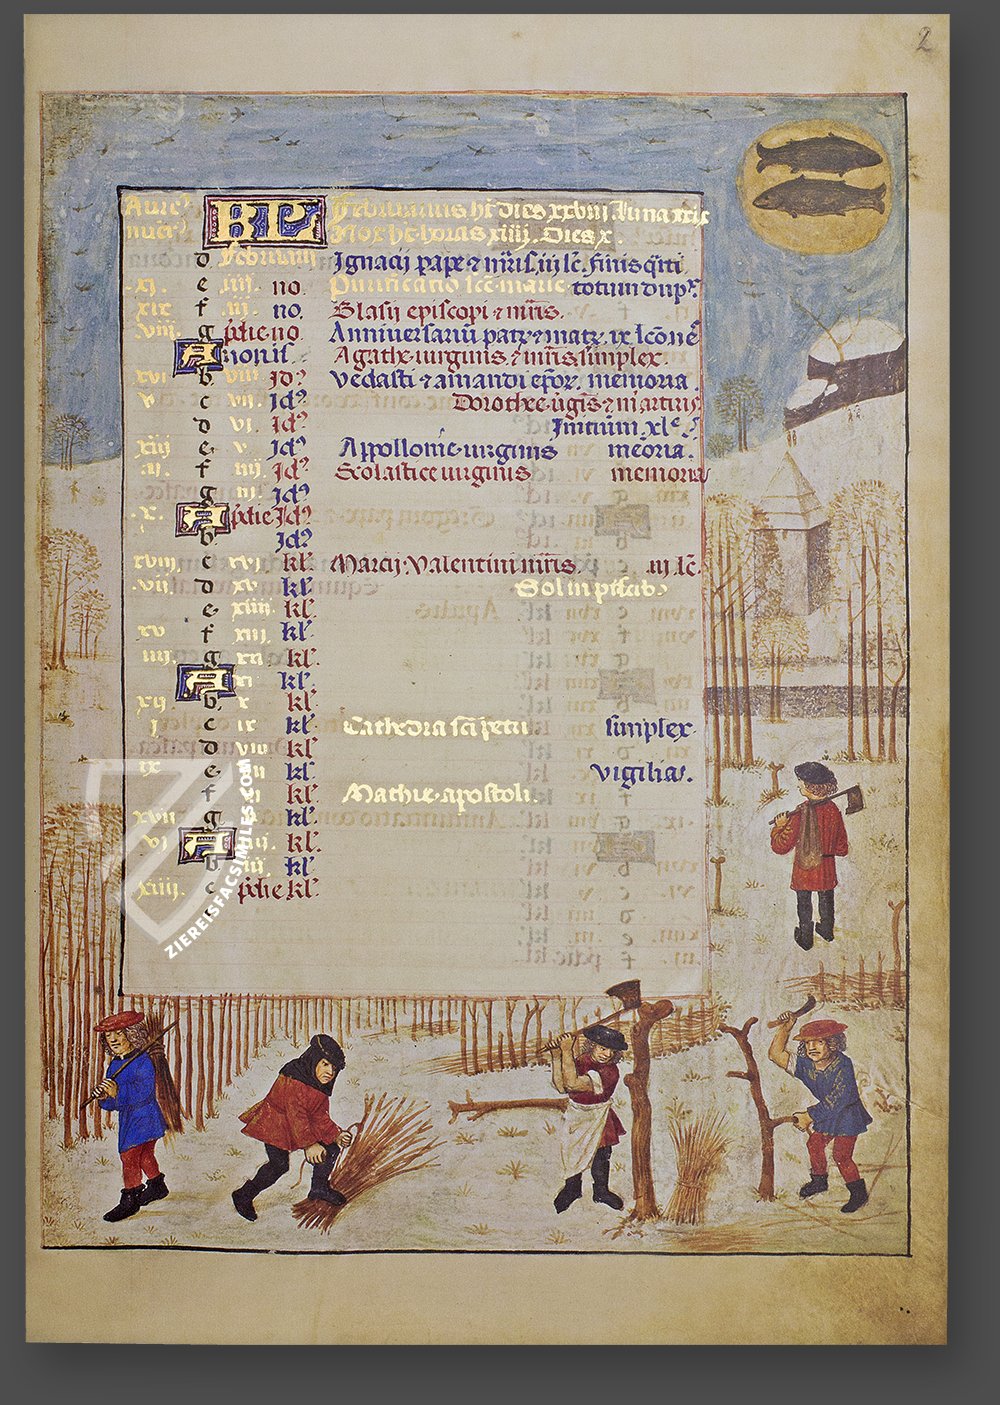 2
Aure⁹ KL Februarius ht dies xxviij. luna xxix
nuer⁹ Nox ht horas xiiij. Dies x.
d februarij Ignacij pape ⁊ mr̃is. iij lc̄. finis
xj. e iiij. no. Purificatio sc̄e marie totum dup.
xix f iij. no. Blasij episcopi ⁊ mr̃is.
viij. g p̃die no. Anniversariũ patꝝ ⁊ matꝝ. ix lc̄one
A nonis Agathe uirginis ⁊ mr̃is simplex
xvi b viij Id⁹ Vedasti ⁊ amandi ep̃oꝝ. memoria.
v c vij. Id⁹ Dorothee ũgis ⁊ martiris
d vi. Id⁹ Initium xl⁠e
xiij e v. Id⁹ Appollonie uirginis mẽoria.
ij. f iiij Id⁹ Scolastice uirginis memoria
g iij Id⁹
x. A p̃die Id⁹
b Id⁹
xviij. c xvj. kl̃. Marcij Valentini mr̃is. iij lc̄.
vij. d xv kl̃. Sol in piscib⁹
e xiiij. kl̃.
xv f xiij. kl̃.
iiij. g xii kl̃.
A xi kl̃.
xij. b x kl̃.
j c ix kl̃ Cathedra sc̄i petri simplex
d viij kl̃
ix e vij kl̃ vigilia.
f vi kl̃. Mathie apostoli.
xvij g kl̃.
vj A iiij. kl̃.
b iij. kl̃
xiiij. c p̃die kl̃.
ZIEREISFACSIMILES.COM